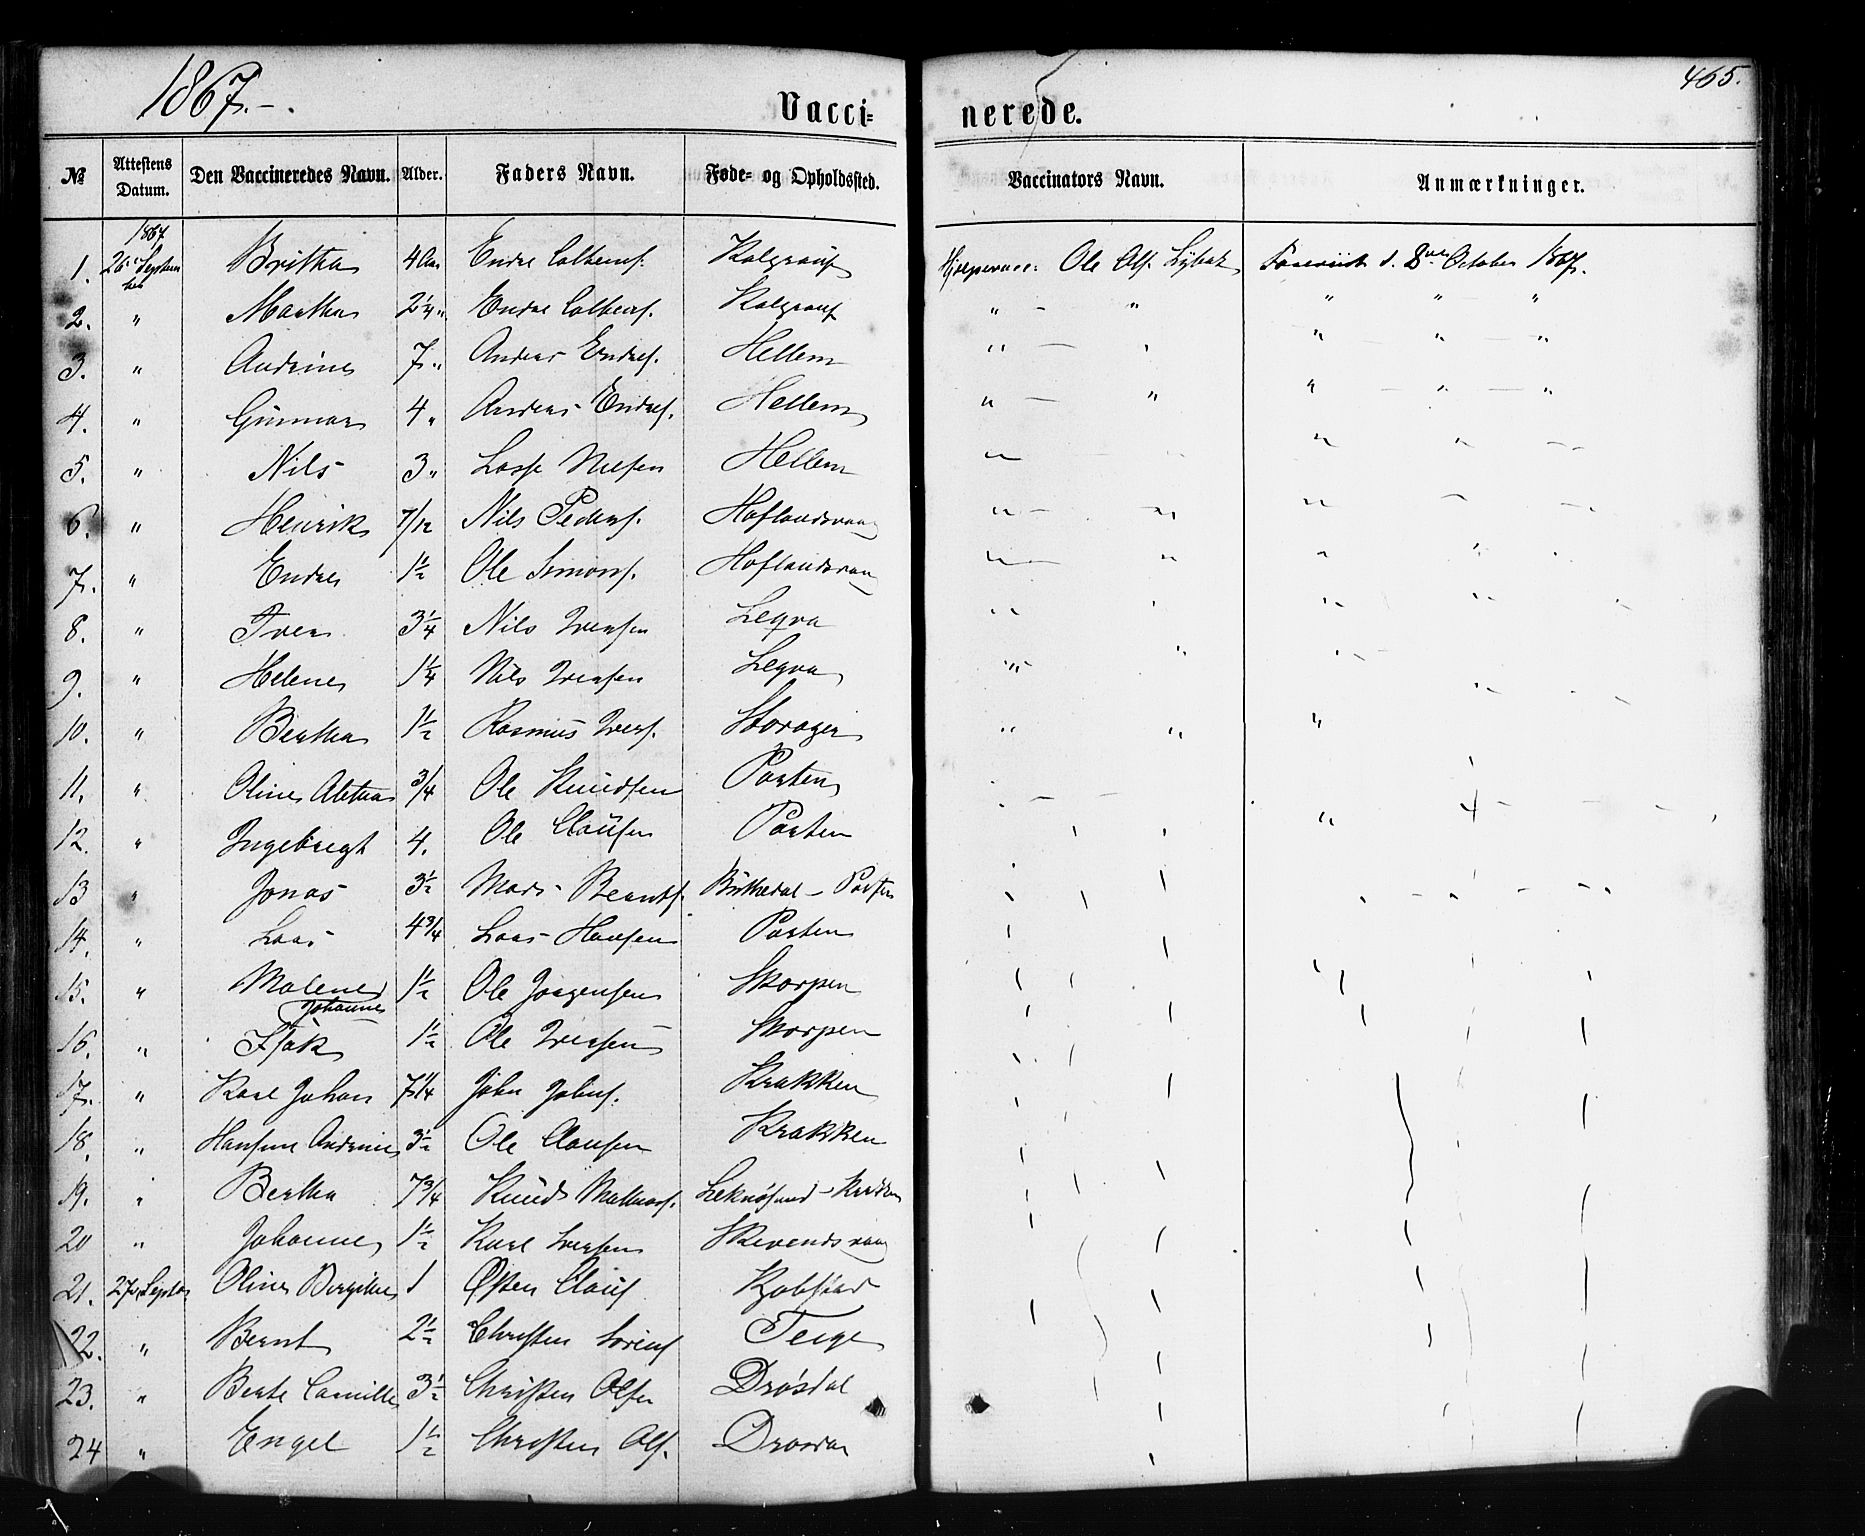 1867.-.
465.
Vacci= nerede.
№ Attestens Datum. Den Vaccineredes Navn. Alder. Faders Navn. Føde- og Opholdssted. Vaccinators Navn. Anmærkninger.
1867
1. 26 Septem ber Britha 4 Aar Endre Kalgrauf Hjelpevacc: Ole Ols. Foreviist d. 8de October 1867.
2. " Martha 2¼ " Endre Kalgrauf " - " " " "
3. " Andrine 7 " Anders Endres. Hellem " — " " — " — "
4. " Gunnar 4 " Anders Endres. Hellem " — " " — " — "
5. " Nils 3 " Lasse Nilsen Hellem
6. " Henrik 7/12 Nils Peders. Haflandsvaag
7. " Endre 1½ Ole Simons. Haflandsvaag
8. " Iver 3¼ Nils Iversen Leqva
9. " Helene 1¼ Nils Iversen Leqva
10. " Bertha 1½ Rasmus Ivers. Storagen
11. " Oline Alethea ¾ Ole Knudsen Porten
12. " Ingebregt 4. Ole Clausen Porten
13 " Jonas 3½ Mads Berents. Porten
14. " Lars 4¾ Lars Hansen Porten
15. " Malene Johanne 1½ Ole Jørgensen Skorpen
16. " Isak 1½ Ole Iversen Skorpen
17. " Karl Johan 7¼ John Johns. Krakken
18. " Hansine Andrine 3½ Ole Clausen Krakken
19. " Bertha 7¾ Knud Leknøsund - Krakken
20 " Johanne 1½ Karl Iversen Skevendsvaag
21. 27 Septbr Oline Bergithe 1 Østen Claus.
22. " Bernt 2½ Christen Sørens Teige
23. " Berte Camille 3½ Christen Olsen Drøsdal
24 " Engel 1½ Christen Ols. Drøsdal